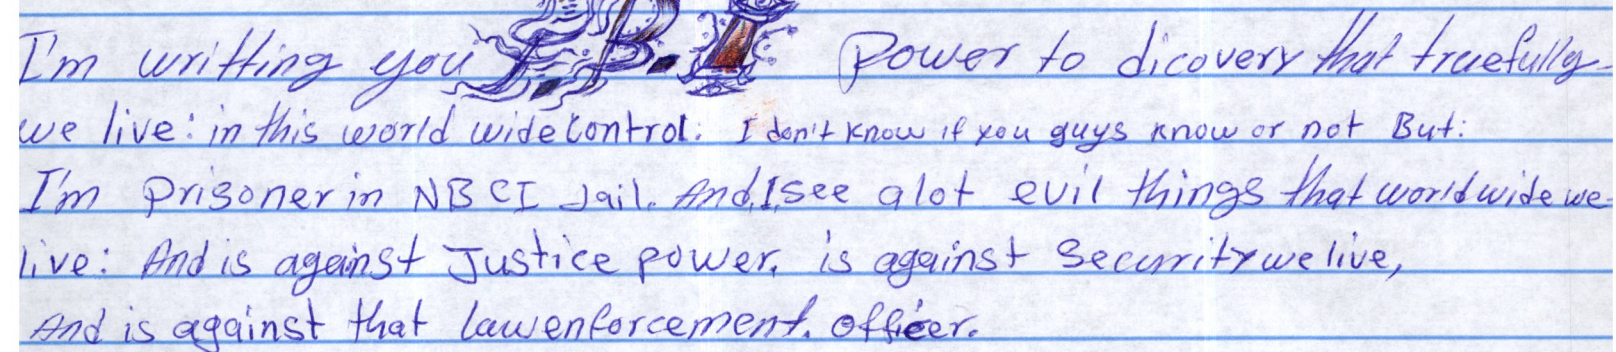 I'm writting you F.B.I Power to dicovery that truefully
we live: in this world wide control: I don't know if you guys know or not But:
I'm Prisoner in NBCI Jail. And, I see alot evil things that world wide we
live: And is against Justice power, is against Security we live,
And is against that lawenforcement. officer.